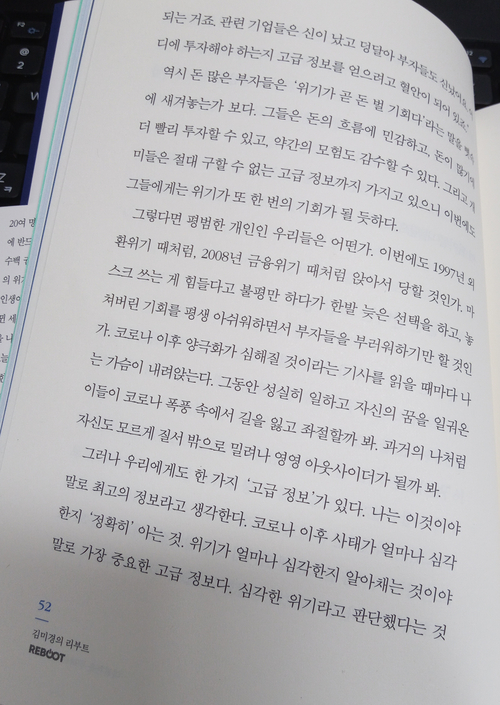 되는 거죠. 관련 기업들은 신이 났고 덩달아 부자들도
디에 투자해야 하는지 고급 정보를 얻으려고 혈안이 되어 있죠.”
역시 돈 많은 부자들은 ‘위기가 곧 돈 벌 기회다’라는 말을
에 새겨놓는가 보다. 그들은 돈의 흐름에 민감하고, 돈이 많기에
더 빨리 투자할 수 있고, 약간의 모험도 감수할 수 있다. 그리고 개
미들은 절대 구할 수 없는 고급 정보까지 가지고 있으니 이번에도
그들에게는 위기가 또 한 번의 기회가 될 듯하다.
그렇다면 평범한 개인인 우리들은 어떤가. 이번에도 1997년 외
환위기 때처럼, 2008년 금융위기 때처럼 앉아서 당할 것인가. 마
스크 쓰는 게 힘들다고 불평만 하다가 한발 늦은 선택을 하고, 놓
쳐버린 기회를 평생 아쉬워하면서 부자들을 부러워하기만 할 것인
가. 코로나 이후 양극화가 심해질 것이라는 기사를 읽을 때마다 나
는 가슴이 내려앉는다. 그동안 성실히 일하고 자신의 꿈을 일궈온
이들이 코로나 폭풍 속에서 길을 잃고 좌절할까 봐. 과거의 나처럼
자신도 모르게 질서 밖으로 밀려나 영영 아웃사이더가 될까 봐.
그러나 우리에게도 한 가지 ‘고급 정보’가 있다. 나는 이것이야
말로 최고의 정보라고 생각한다. 코로나 이후 사태가 얼마나 심각
한지 ‘정확히’ 아는 것. 위기가 얼마나 심각한지 알아채는 것이야
말로 가장 중요한 고급 정보다. 심각한 위기라고 판단했다는 것
52
김미경의 리부트
REBOOT
20여 명
에 반드
수백 권
의 위기
인생이